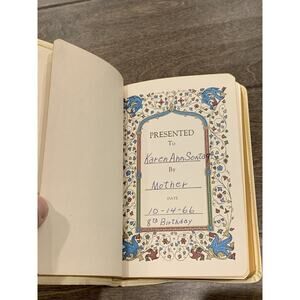 PRESENTED
To
Karen Ann
By
Mother
DATE
10-14-66
8th Birthday